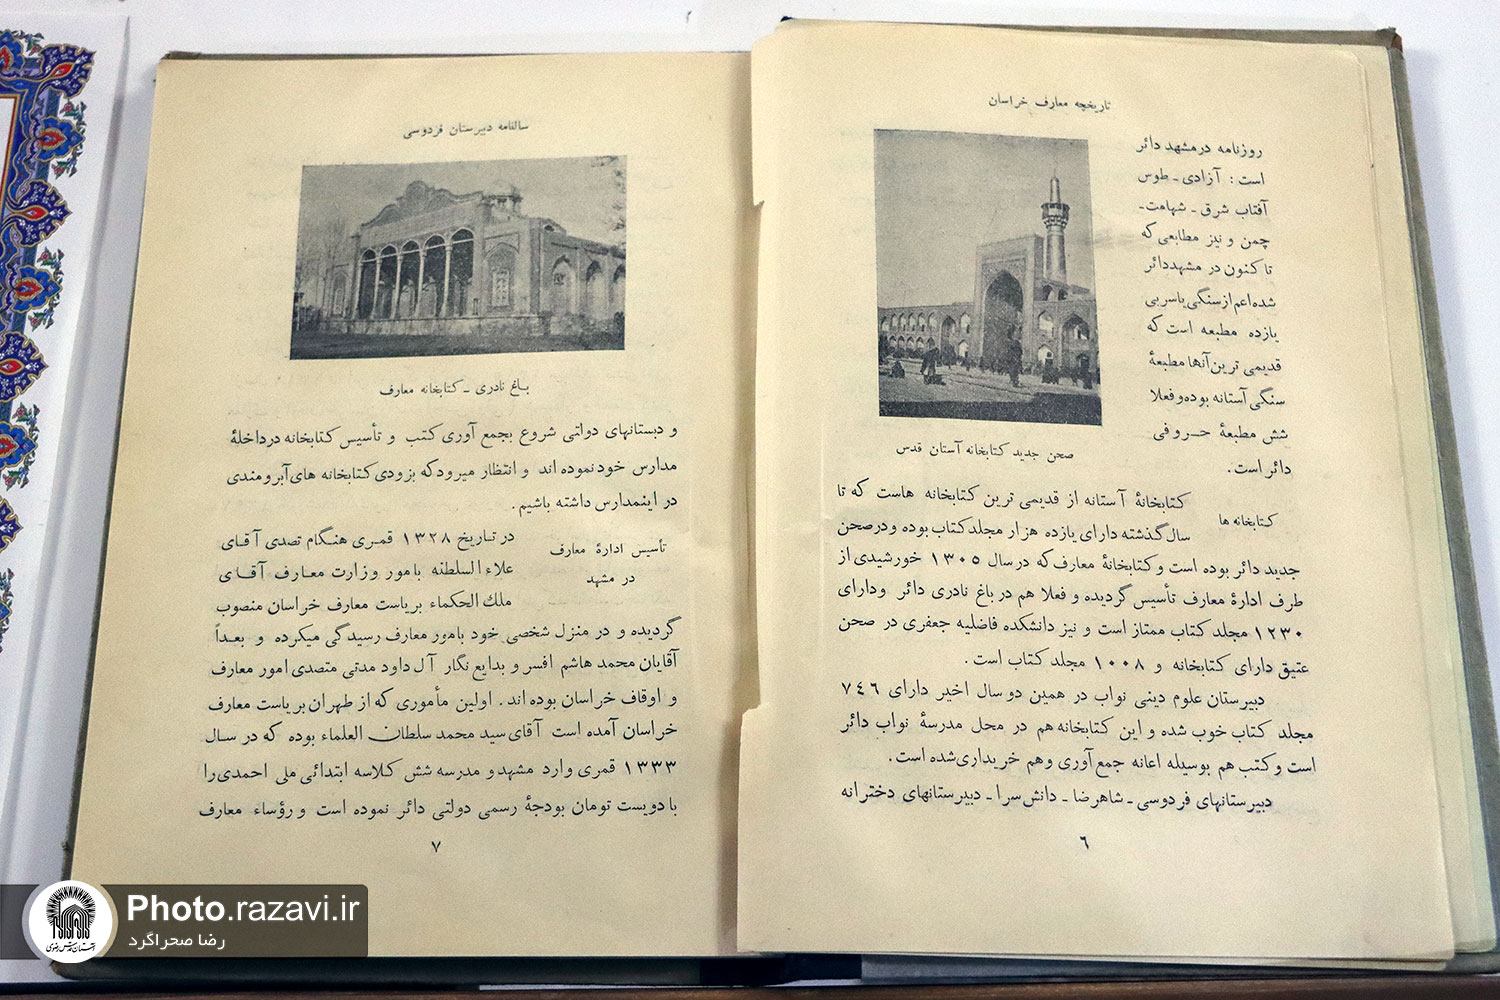 تاریخچه معارف خراسان
روزنامه در مشهد دائر
است : آزادی ـ طوس
آفتاب شرق ـ شهامت ـ
چمن و نیز مطابعی که
تا کنون در مشهد دائر
شده اعم از سنگی یا سربی
یازده مطبعه است که
قدیمی ترین آنها مطبعهٔ
سنگی آستانه بوده و فعلا
شش مطبعهٔ حروفی
دائر است .
صحن جدید کتابخانه آستان قدس
کتابخانه ها
کتابخانهٔ آستانه از قدیمی ترین کتابخانه هاست که تا
سال گذشته دارای یازده هزار مجلد کتاب بوده و در صحن
جدید دائر بوده است و کتابخانهٔ معارف که در سال ۱۳۰۵ خورشیدی از
طرف ادارهٔ معارف تأسیس گردیده و فعلا هم در باغ نادری دائر و دارای
۱۲۳۰ مجلد کتاب ممتاز است و نیز دانشکده فاضلیه جعفری در صحن
عتیق دارای کتابخانه و ۱۰۰۸ مجلد کتاب است .
دبیرستان علوم دینی نواب در همین دو سال اخیر دارای ۷٤٦
مجلد کتاب خوب شده و این کتابخانه هم در محل مدرسهٔ نواب دائر
است و کتب هم بوسیله اعانه جمع آوری و هم خریداری شده است .
دبیرستانهای فردوسی ـ شاهرضا ـ دانش سرا ـ دبیرستانهای دخترانه
٦
سالنامه دبیرستان فردوسی
باغ نادری ـ کتابخانه معارف
و دبستانهای دولتی شروع بجمع آوری کتب و تأسیس کتابخانه در داخلهٔ
مدارس خود نموده اند و انتظار میرود که بزودی کتابخانه های آبرومندی
در اینمدارس داشته باشیم .
تأسیس ادارهٔ معارف
در مشهد
در تاریخ ۱۳۲۸ قمری هنگام تصدی آقای
علاء السلطنه بامور وزارت معارف آقای
ملك الحکماء بریاست معارف خراسان منصوب
گردیده و در منزل شخصی خود بامور معارف رسیدگی میکرده و بعداً
آقایان محمد هاشم افسر و بدایع نگار آل داود مدتی متصدی امور معارف
و اوقاف خراسان بوده اند . اولین مأموری که از طهران بریاست معارف
خراسان آمده است آقای سید محمد سلطان العلماء بوده که در سال
۱۳۳۳ قمری وارد مشهد و مدرسه شش کلاسه ابتدائی ملی احمدی را
با دویست تومان بودجهٔ رسمی دولتی دائر نموده است و رؤساء معارف
۷
Photo.razavi.ir
رضا صحراگرد
آستان قدس رضوی